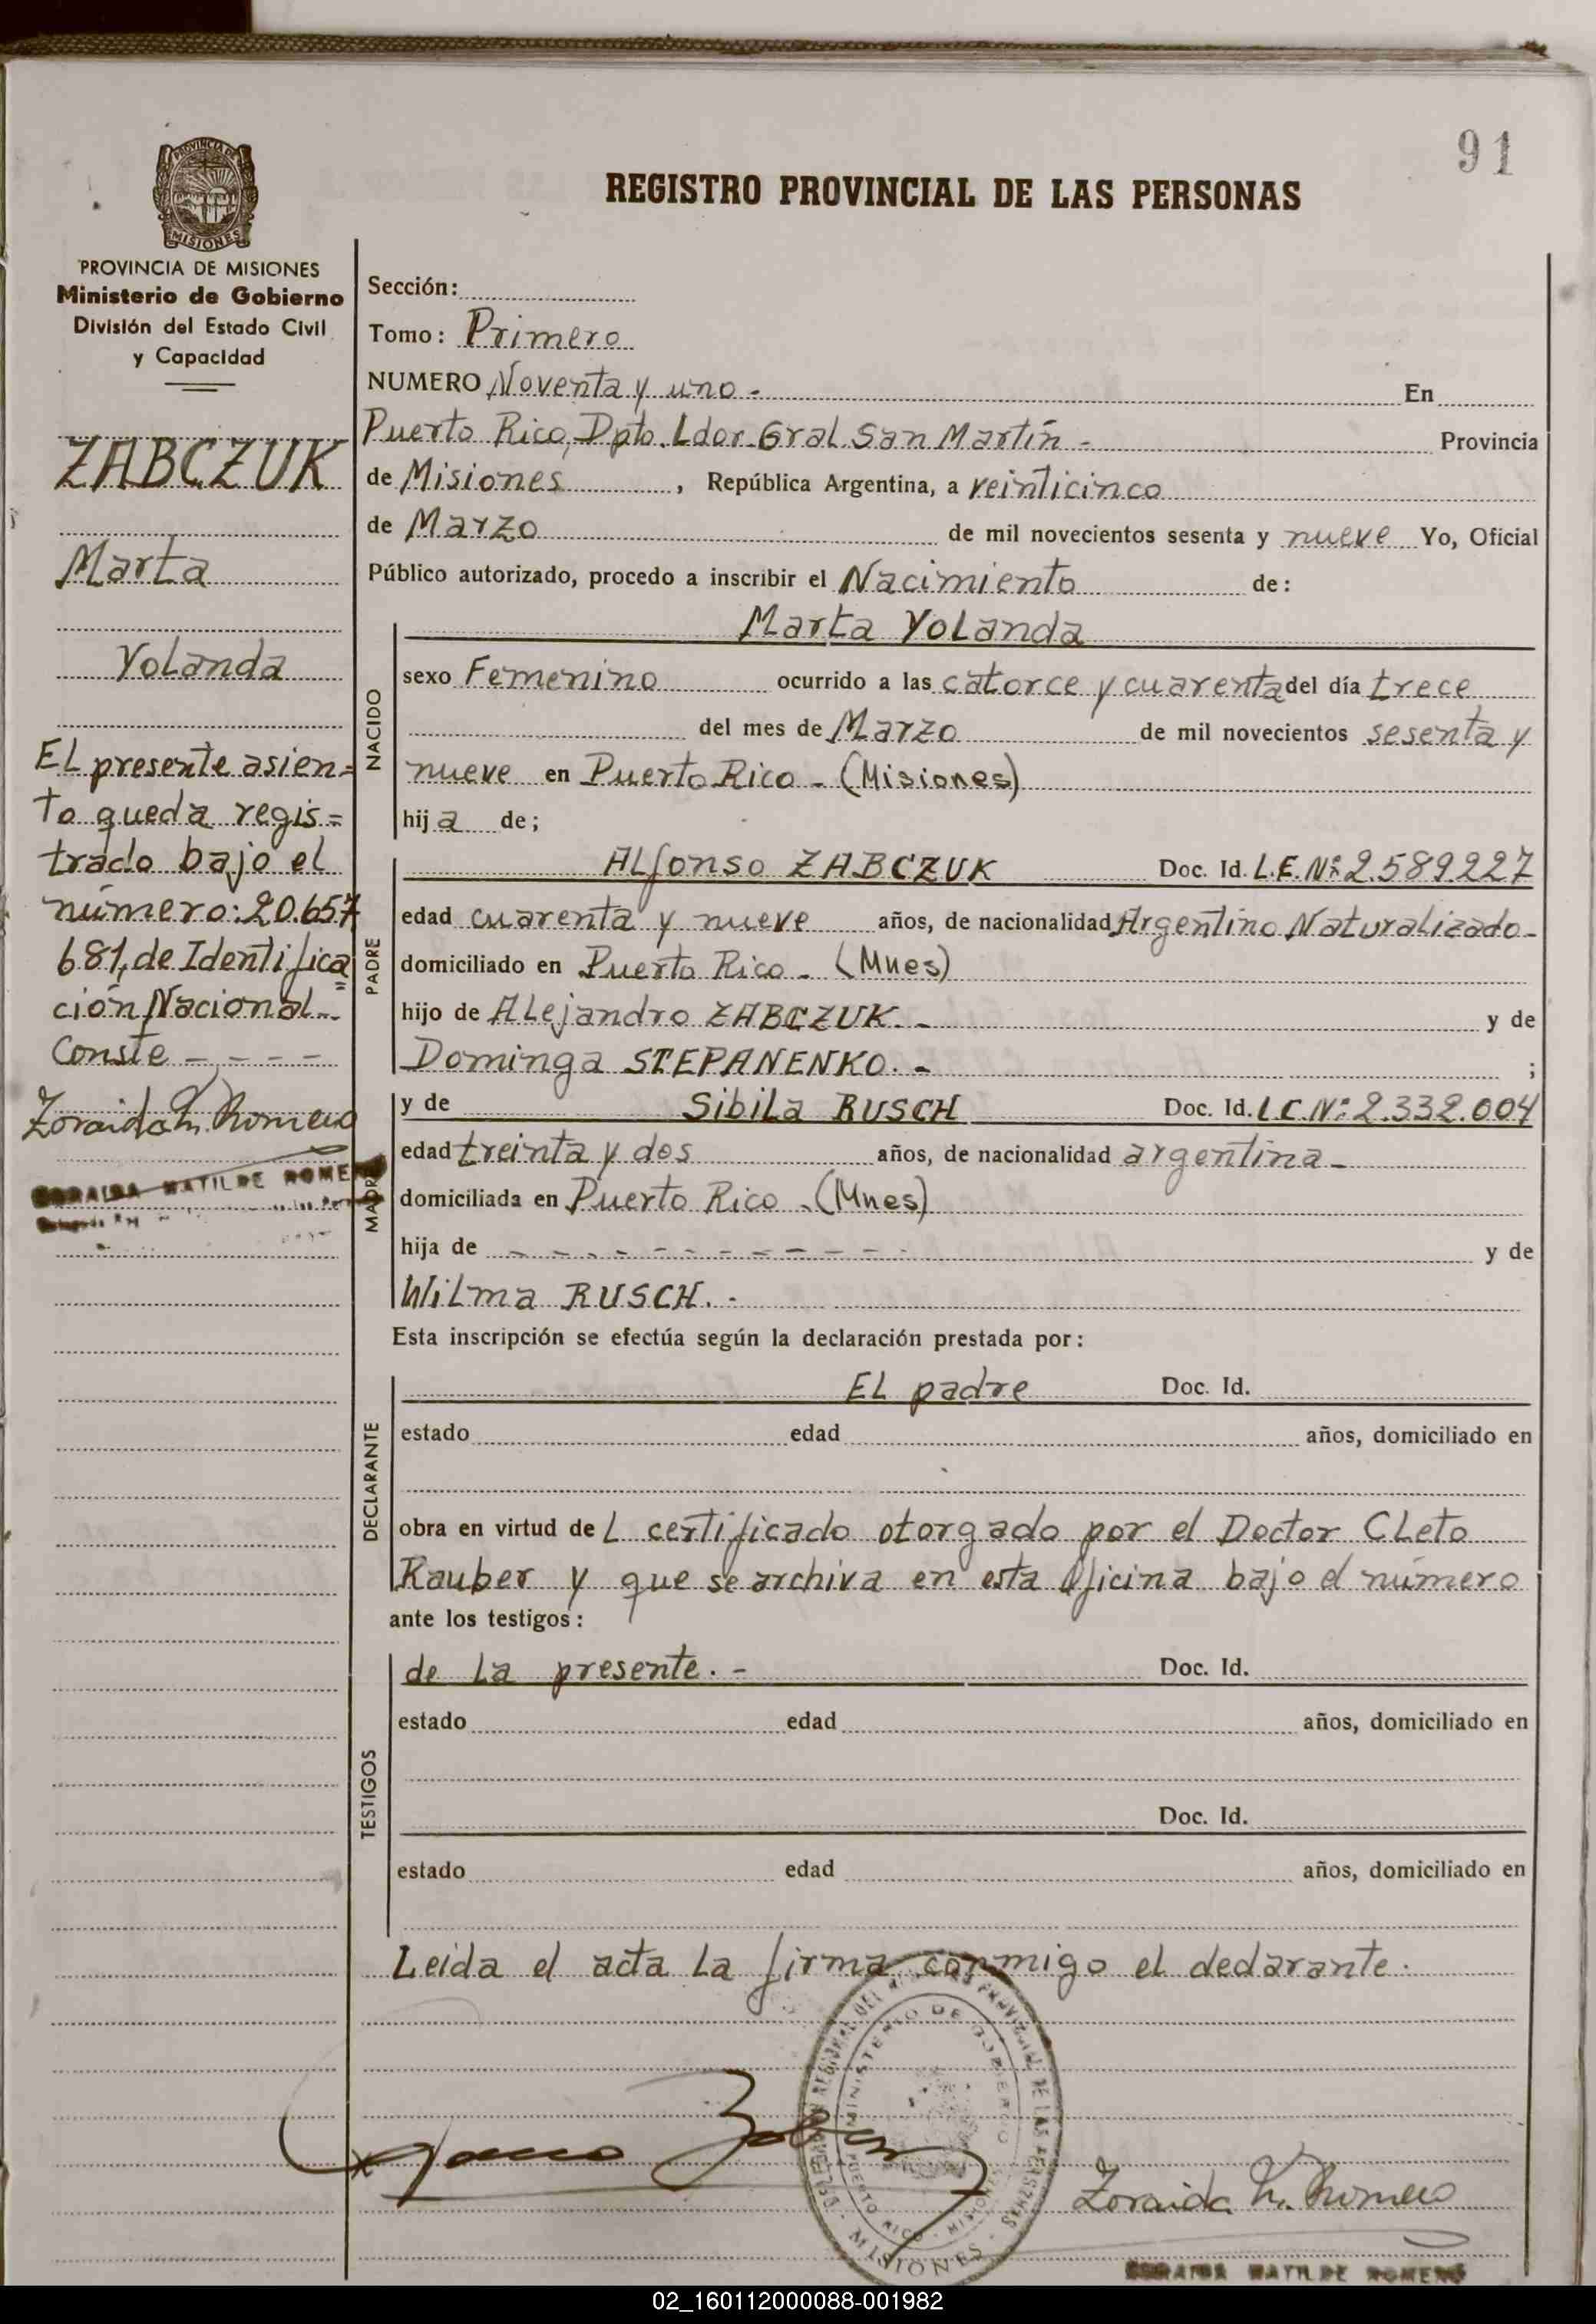 91
REGISTRO PROVINCIAL DE LAS PERSONAS
PROVINCIA DE
MISIONES
PROVINCIA DE MISIONES
Ministerio de Gobierno
División del Estado Civil
y Capacidad
ZABCZUK
Marta
Yolanda
El presente asien=
to queda regis=
trado bajo el
número: 20.657
681, de Identifica=
ción Nacional.-
Conste - - - -
Zoraida M. Romero
ZORAIDA MATILDE ROMERO
Sección:
Tomo: Primero
NUMERO Noventa y uno - En
Puerto Rico, Dpto. Ldor. Gral. San Martín - Provincia
de Misiones, República Argentina, a veinticinco
de Marzo de mil novecientos sesenta y nueve Yo, Oficial
Público autorizado, procedo a inscribir el Nacimiento de:
NACIDO
Marta Yolanda
sexo Femenino ocurrido a las catorce y cuarenta del día trece
del mes de Marzo de mil novecientos sesenta y
nueve en Puerto Rico - (Misiones)
hija de;
PADRE
Alfonso ZABCZUK Doc. Id. L.E. Nº 2.589.227
edad cuarenta y nueve años, de nacionalidad Argentino Naturalizado-
domiciliado en Puerto Rico - (Mnes)
hijo de Alejandro ZABCZUK. - y de
Dominga STEPANENKO. - ;
MADRE
y de Sibila RUSCH Doc. Id. L.C. Nº 2.332.004
edad treinta y dos años, de nacionalidad argentina -
domiciliada en Puerto Rico - (Mnes)
hija de - - - - - - - - - - - y de
Wilma RUSCH. -
Esta inscripción se efectúa según la declaración prestada por:
DECLARANTE
El padre Doc. Id.
estado edad años, domiciliado en
obra en virtud del certificado otorgado por el Doctor Cleto
Rauber y que se archiva en esta Oficina bajo el número
ante los testigos:
TESTIGOS
de la presente. - Doc. Id.
estado edad años, domiciliado en
Doc. Id.
estado edad años, domiciliado en
Leida el acta la firma conmigo el declarante.
MINISTERIO DE GOBIERNO
PUERTO RICO - MISIONES
MISIONES
Zoraida M. Romero
ZORAIDA MATILDE ROMERO
02_160112000088-001982